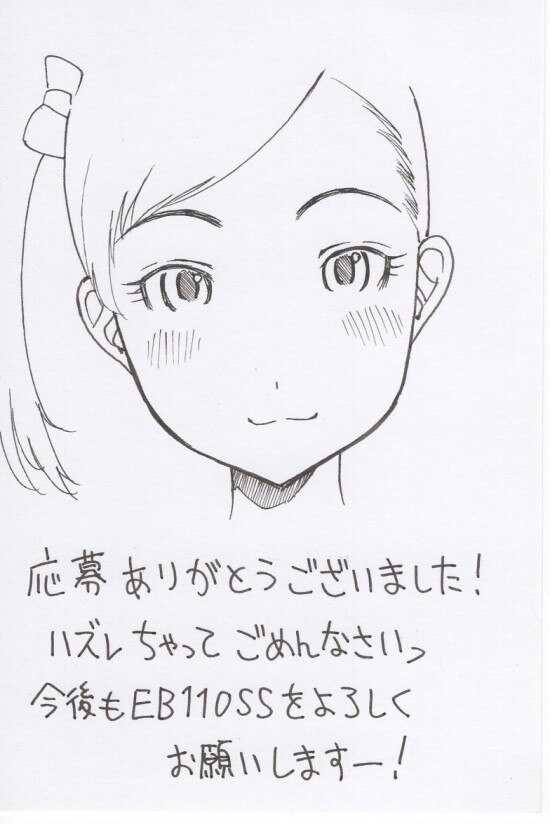 応募ありがとうございました!
ハズレちゃってごめんなさいっ
今後もEB110SSをよろしく
お願いしますー!